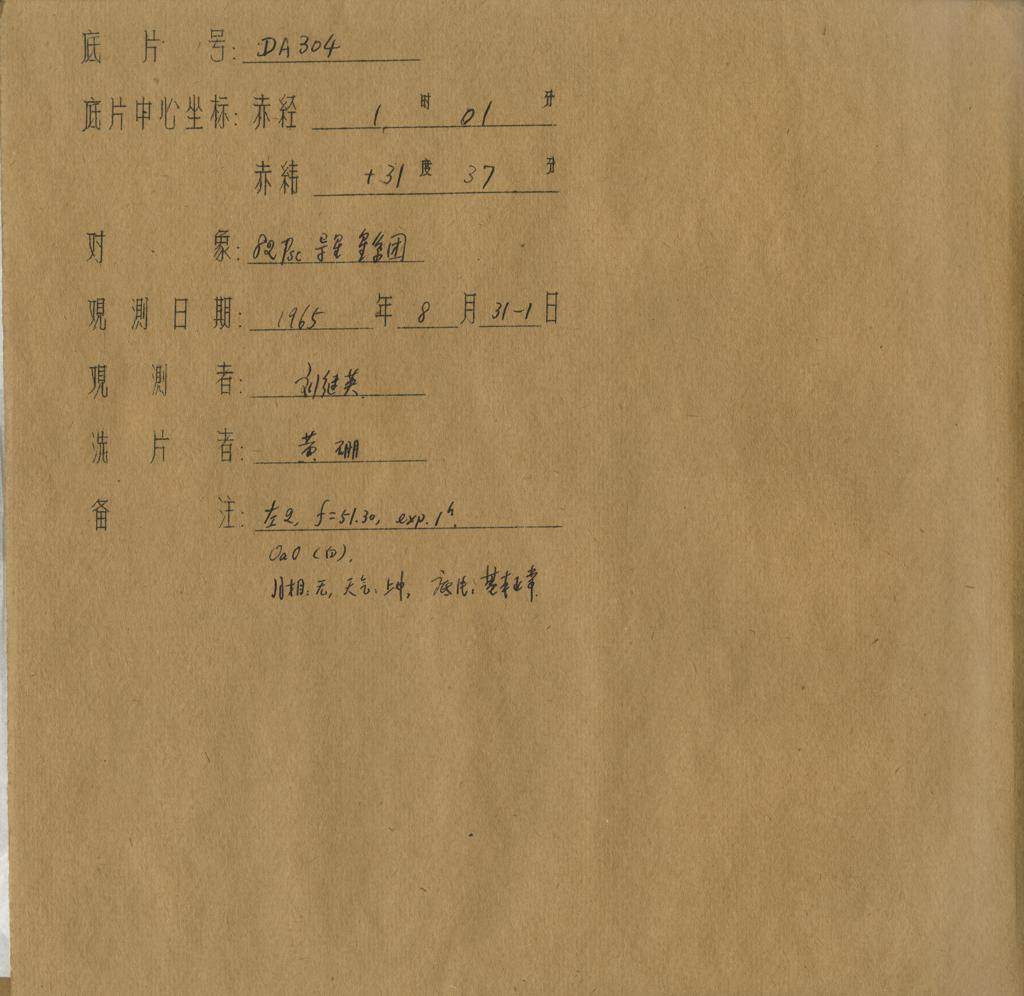 底片号: DA304
底片中心坐标: 赤经 1 时 01 分
赤纬 +31 度 37 分
对象: 82Psc 导星 星系团
观测日期: 1965 年 8 月 31-1 日
观测者: 刘继英
洗片者: 黄硼
备注: 左2, f=51.30, exp.1h.
OaO (白).
月相: 无, 天气: 上中, 底片: 基本正常.